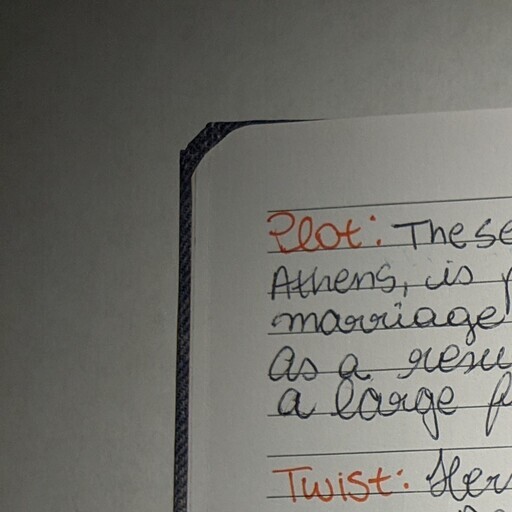 Plot: These
Athens, is
marriage
as a resu
a large
Twist: Her